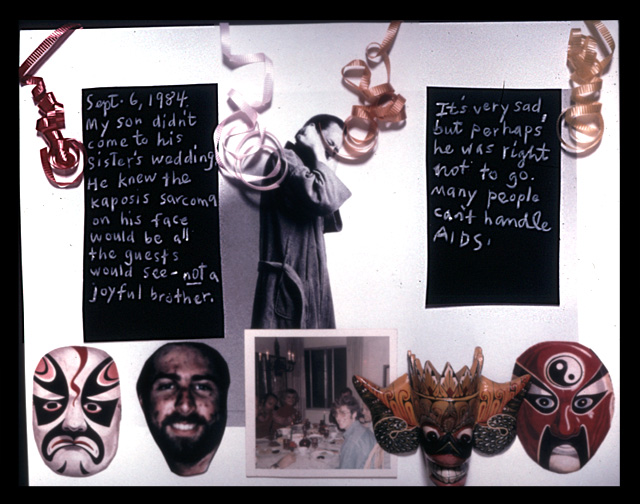 Sept. 6, 1984.
My son didn't
come to his
sister's wedding.
He knew the
kaposis sarcoma
on his face
would be all
the guests
would see - not a
joyful brother.
It's very sad,
but perhaps
he was right
not to go.
Many people
can't handle
AIDS.